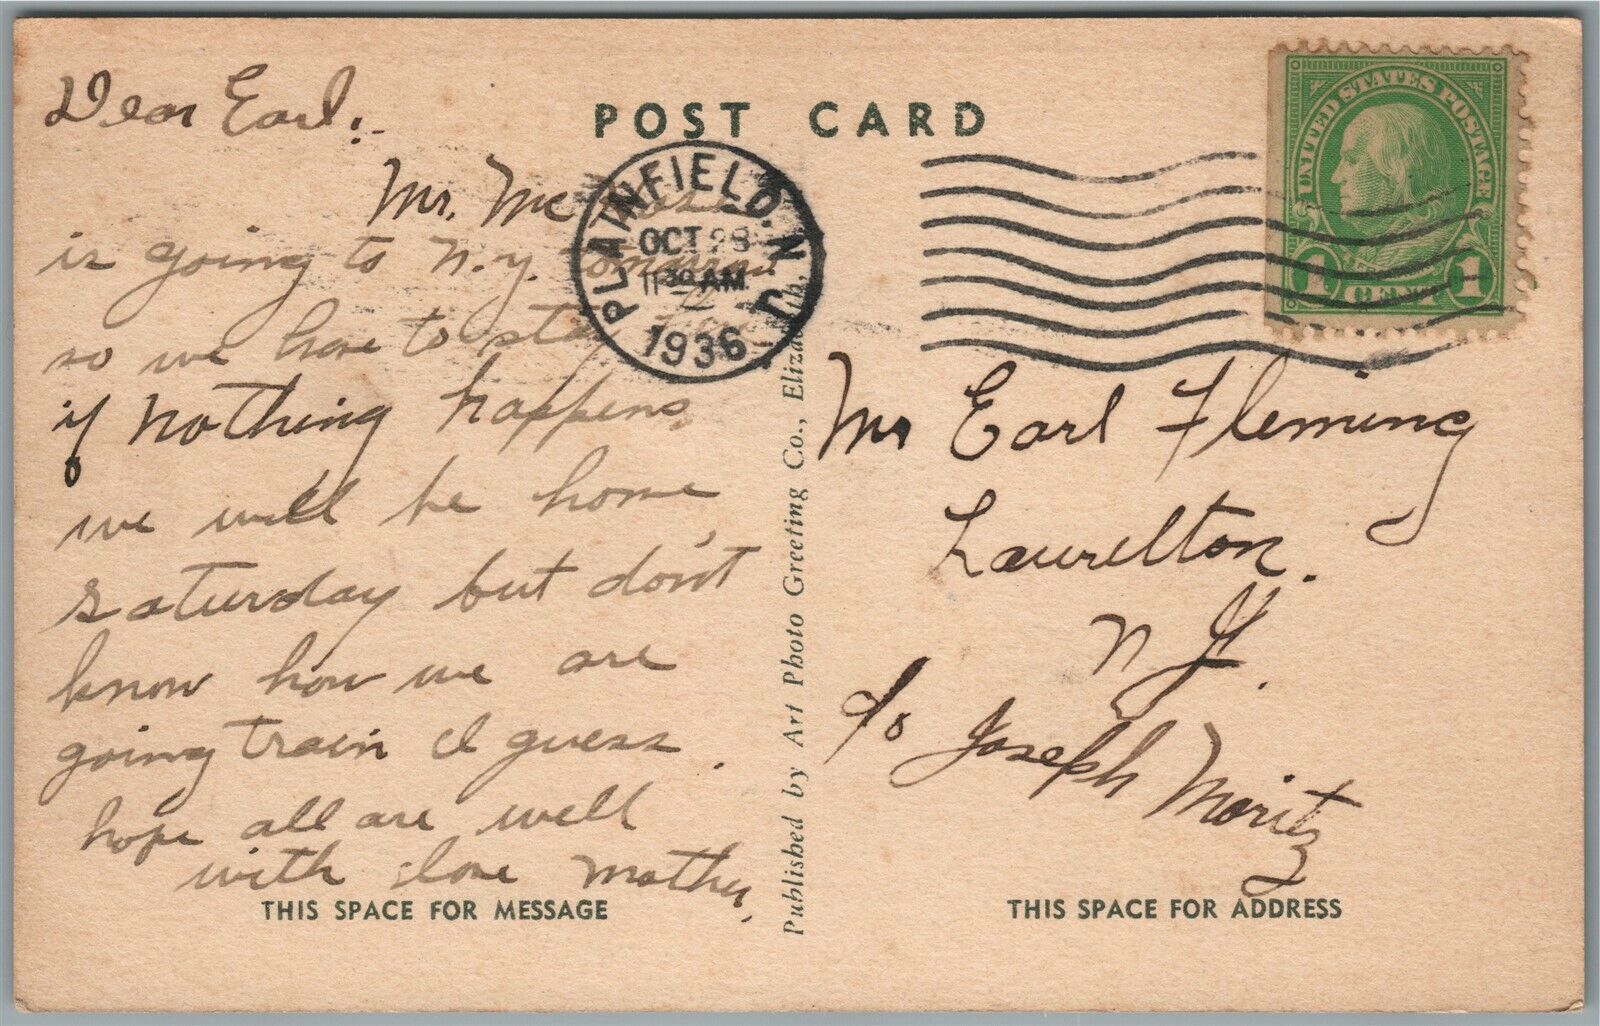 POST CARD
Dear Earl:-
Mr. Mc
is going to N.Y.
so we have to stay
if nothing happens
we will be home
Saturday but don't
know how we are
going train I guess.
hope all are well
with love Mother.
THIS SPACE FOR MESSAGE
PLAINFIELD. N. J.
OCT 28
11 30 AM
1936
Published by Art Photo Greeting Co., Elizabeth, N. J.
UNITED STATES POSTAGE
1 CENT 1
Mr Earl Fleming
Laurelton.
N J.
c/o Joseph Moritz
THIS SPACE FOR ADDRESS